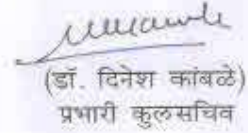 (डॉ. दिनेश कांबळे)
प्रभारी कुलसचिव